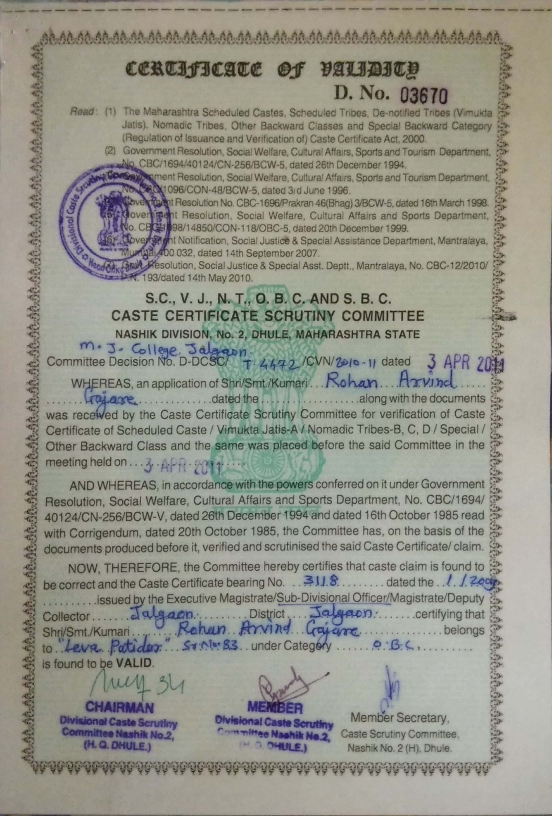 CERTIFICATE OF VALIDITY
D. No. 03670
Read : (1) The Maharashtra Scheduled Castes, Scheduled Tribes, De-notified Tribes (Vimukta
Jatis). Nomadic Tribes, Other Backward Classes and Special Backward Category
(Regulation of Issuance and Verification) of Caste Certificate Act, 2000.
(2) Government Resolution, Social Welfare, Cultural Affairs, Sports and Tourism Department,
No. CBC/1694/40124/CN-256/BCW-5, dated 26th December 1994.
Resolution, Social Welfare, Cultural Affairs, Sports and Tourism Department,
1096/CON-48/BCW-5, dated 3rd June 1996.
Resolution No. CBC-1696/Prakran-46(Bhag) 3/BCW-5, dated 16th March 1998.
Resolution, Social Welfare, Cultural Affairs and Sports Department,
No. 14850/CON-118/OBC-5, dated 20th December 1999.
Notification, Social Justice & Special Assistance Department, Mantralaya,
400 032, dated 14th September 2007.
Resolution, Social Justice & Special Asst. Deptt., Mantralaya, No. CBC-12/2010/
193/dated 14th May 2010.
S.C., V. J., N. T., O. B. C. AND S. B. C.
CASTE CERTIFICATE SCRUTINY COMMITTEE
NASHIK DIVISION, No. 2, DHULE, MAHARASHTRA STATE
M. J. College, Jalgaon
Committee Decision No. D-DCSC/ T 4472 /CVN/2010-11 dated 3 APR 2011
WHEREAS, an application of Shri/Smt./Kumari Rohan Arvind
Gajare dated the along with the documents
was received by the Caste Certificate Scrutiny Committee for verification of Caste
Certificate of Scheduled Caste / Vimukta Jatis-A / Nomadic Tribes-B, C, D / Special /
Other Backward Class and the same was placed before the said Committee in the
meeting held on 3 APR 2011
AND WHEREAS, in accordance with the powers conferred on it under Government
Resolution, Social Welfare, Cultural Affairs and Sports Department, No. CBC/1694/
40124/CN-256/BCW-V, dated 26th December 1994 and dated 16th October 1985 read
with Corrigendum, dated 20th October 1985, the Committee has, on the basis of the
documents produced before it, verified and scrutinised the said Caste Certificate/ claim.
NOW, THEREFORE, the Committee hereby certifies that caste claim is found to
be correct and the Caste Certificate bearing No. 3118 dated the
issued by the Executive Magistrate/Sub-Divisional Officer/Magistrate/Deputy
Collector Jalgaon District Jalgaon certifying that
Shri/Smt./Kumari Rohan Arvind Gajare belongs
to "Leva Patidar" Sr.No.83 under Category O.B.C.
is found to be VALID.
CHAIRMAN
Divisional Caste Scrutiny
Committee Nashik No.2,
(H. Q. DHULE.)
MEMBER
Divisional Caste Scrutiny
Committee Nashik No.2,
(H. Q. DHULE.)
Member Secretary,
Caste Scrutiny Committee,
Nashik No. 2 (H), Dhule.